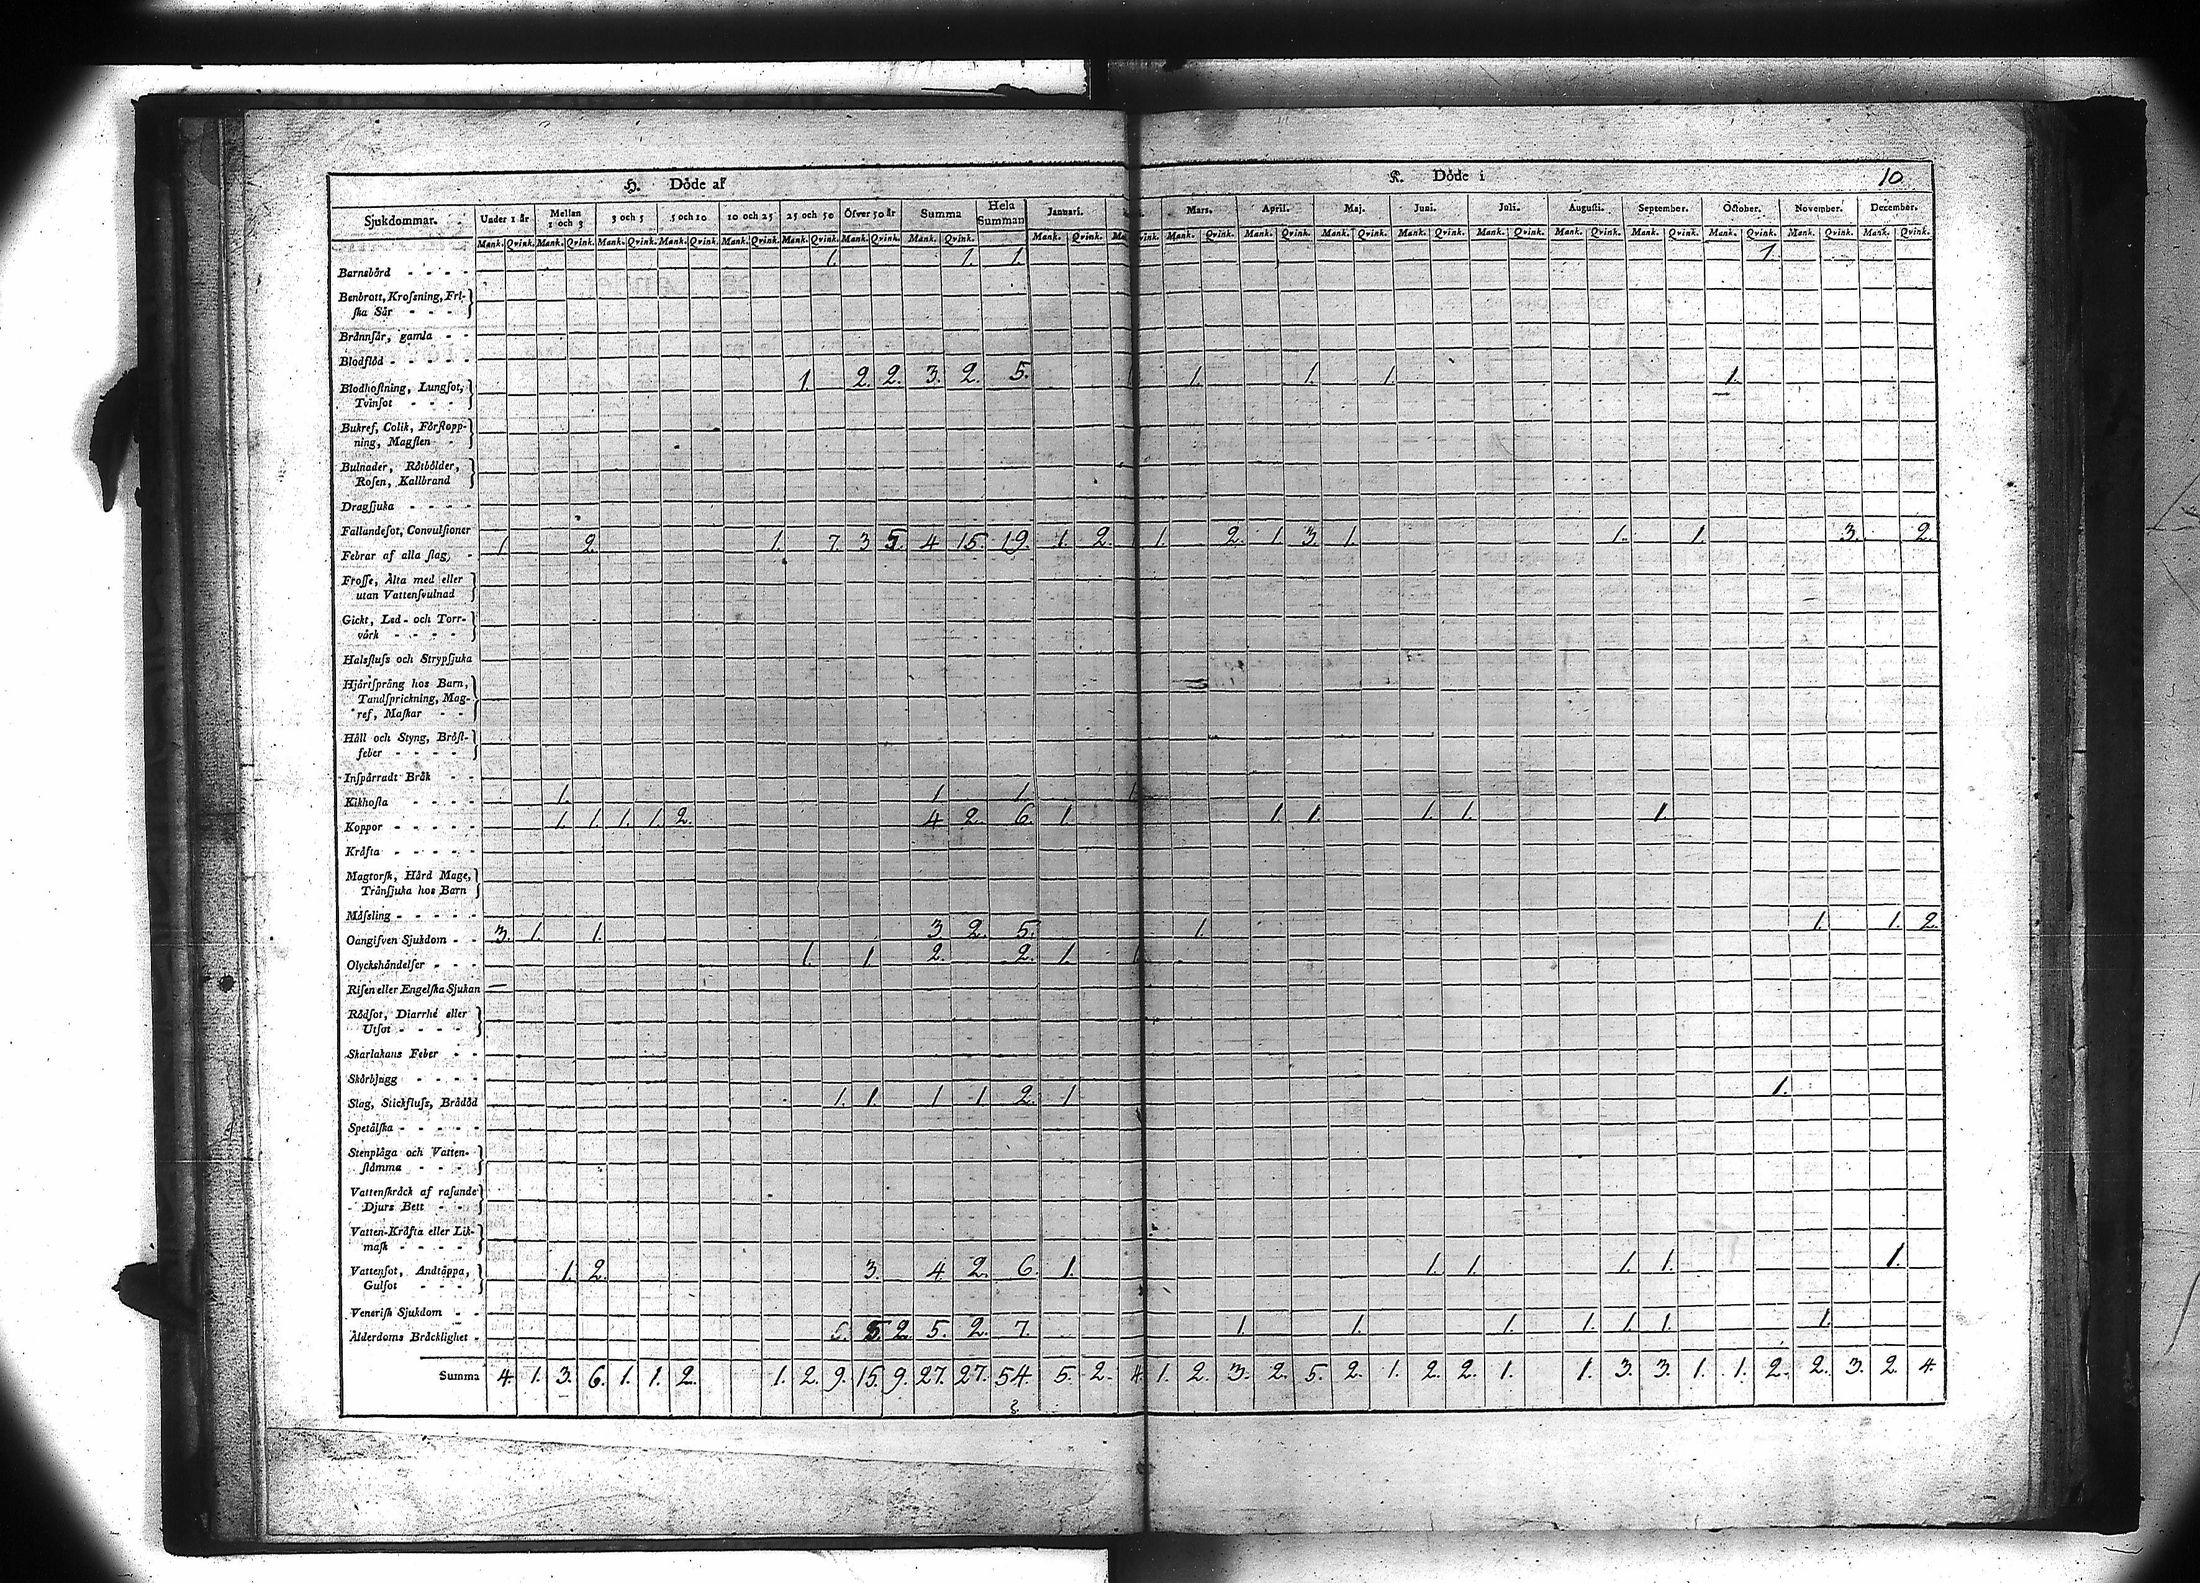 H. Döde af
K. Döde i
10
Sjukdommar. Under 1 år Mellan 1 och 3 3 och 5 5 och 10 10 och 25 25 och 50 Öfver 50 år Summa Hela Summan Januari. Mars. April. Maj. Juni. Juli. Augusti. September. October. November. December.
Mank. Qvink. Mank. Qvink. Mank. Qvink. Mank. Qvink. Mank. Qvink. Mank. Qvink. Mank. Qvink. Mank. Qvink. Mank. Qvink. Mank. Qvink. Mank. Qvink. Mank. Qvink. Mank. Qvink. Mank. Qvink. Mank. Qvink. Mank. Qvink. Mank. Qvink. Mank. Qvink. Mank. Qvink. Mank. Qvink.
Barnsbörd - - - - 1. 1. 1. 1.
Benbrott, Krossning, Fri-
ska Sår - - - -
Brännsår, gamla - -
Blodflöd - - - - -
Blodhostning, Lungsot, 1. 2. 2. 3. 2. 5. 1 1. 1. 1. 1.
Tvinsot - - -
Bukref, Colik, Förstopp-
ning, Magsten -
Bulnader, Rötbölder,
Rosen, Kallbrand
Dragsjuka - - - -
Fallandesot, Convulsioner
Febrar af alla slag, - 1. 2. 1. 7. 3 5. 4 15. 19. 1. 2. 1. 2. 1. 3. 1. 1. 1. 3. 2.
Frosse, Älta med eller
utan Vattensvulnad
Gickt, Led- och Torr-
värk - - - -
Halsfluss och Strypsjuka
Hjärtsprång hos Barn,
Tandsprickning, Mag-
ref, Maskar - -
Håll och Styng, Bröst-
feber - - - -
Inspärradt Bråk - -
Kikhosta - - - - 1. 1 1. 1
Koppor - - - - - 1. 1. 1. 1. 2. 4 2. 6. 1. 1. 1. 1. 1. 1.
Kräfta - - - - -
Magtorsk, Hård Mage,
Trånsjuka hos Barn
Mässling - - - - -
Oangifven Sjukdom - - 3. 1. 1. 3 2. 5. 1. 1. 1. 2.
Olyckshändelser - - - 1. 1. 2. 2. 1. 1
Risen eller Engelska Sjukan
Rödsot, Diarrhé eller
Utsot - - - -
Skarlakans Feber - -
Skörbjugg - - - -
Slag, Stickfluss, Brådöd 1. 1. 1 1. 2. 1 1.
Spetälska - - - - -
Stenplåga och Vatten-
stämma - - -
Vattenskräck af rasande
Djurs Bett - -
Vatten-Kräfta eller Lik-
mask - - - -
Vattensot, Andtäppa, 1. 2. 3. 4 2. 6. 1. 1. 1. 1. 1. 1.
Gulsot - - -
Venerisk Sjukdom - -
Ålderdoms Bräcklighet - 5. 2. 5. 2. 7. 1. 1. 1. 1. 1. 1. 1.
Summa 4. 1. 3. 6. 1. 1. 2. 1. 2. 9. 15. 9. 27. 27. 54. 5. 2. 4. 1. 2. 3. 2. 5. 2. 1. 2. 2. 1. 1. 3. 3. 1. 1. 2. 2. 3. 2. 4.